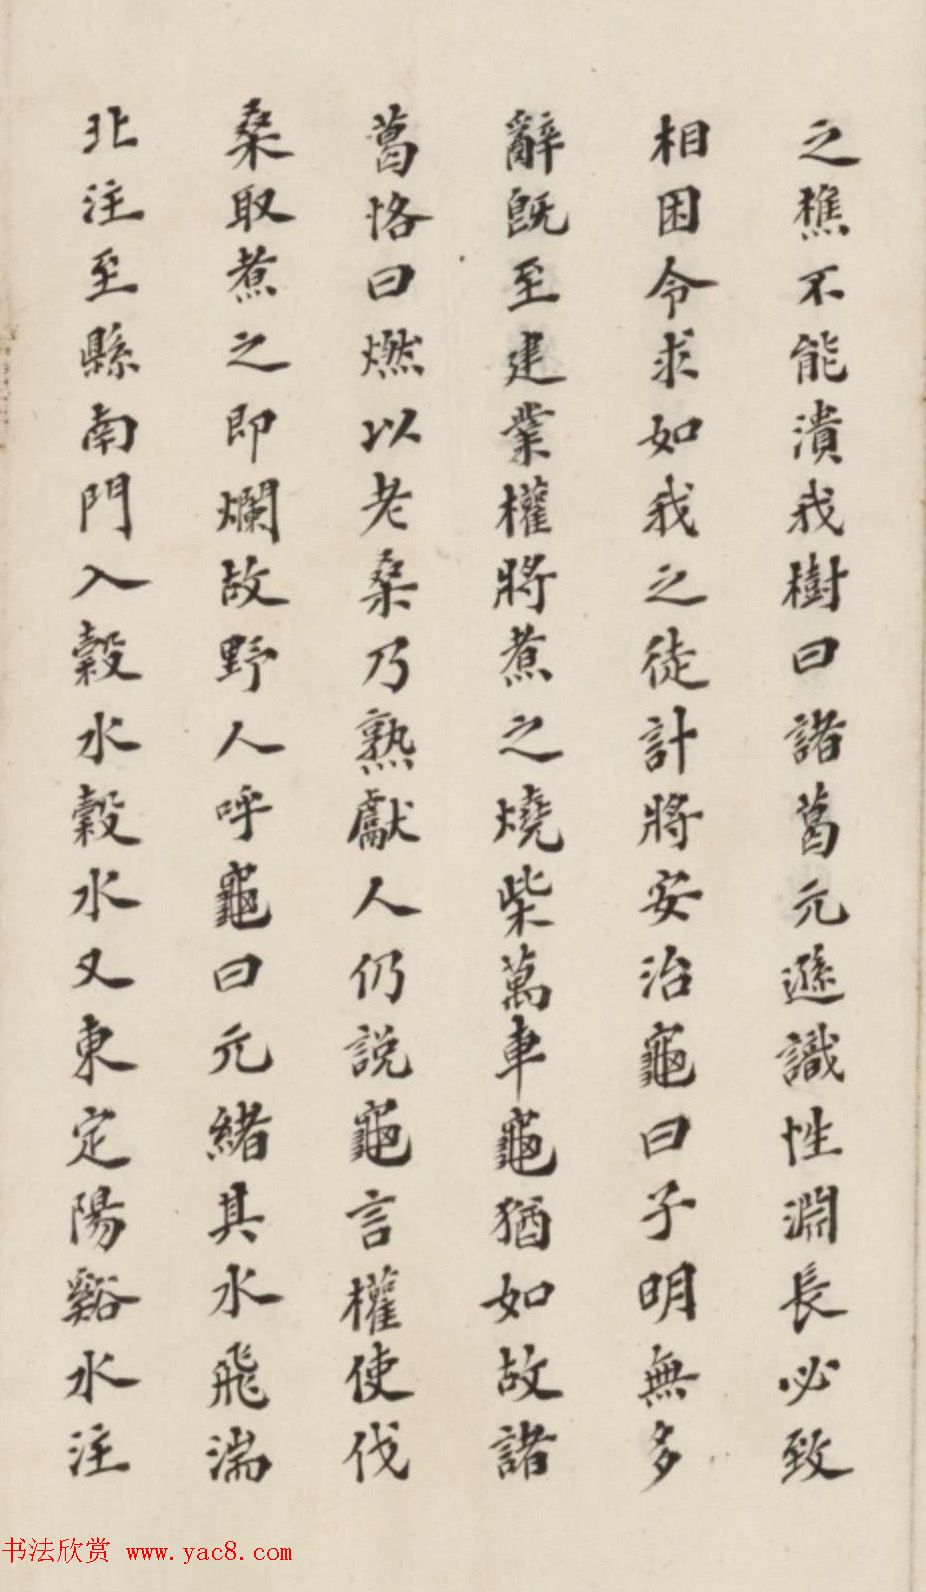 之樵不能潰我樹曰諸葛元遜識性淵長必致
相困令求如我之徒計將安治龜曰子明無多
辭既至建業權將煮之燒柴萬車龜猶如故諸
葛恪曰燃以老桑乃熟獻人仍說龜言權使伐
桑取煮之即爛故野人呼龜曰元緒其水飛湍
北注至縣南門入縠水縠水又東定陽谿水注
书法欣赏 www.yac8.com